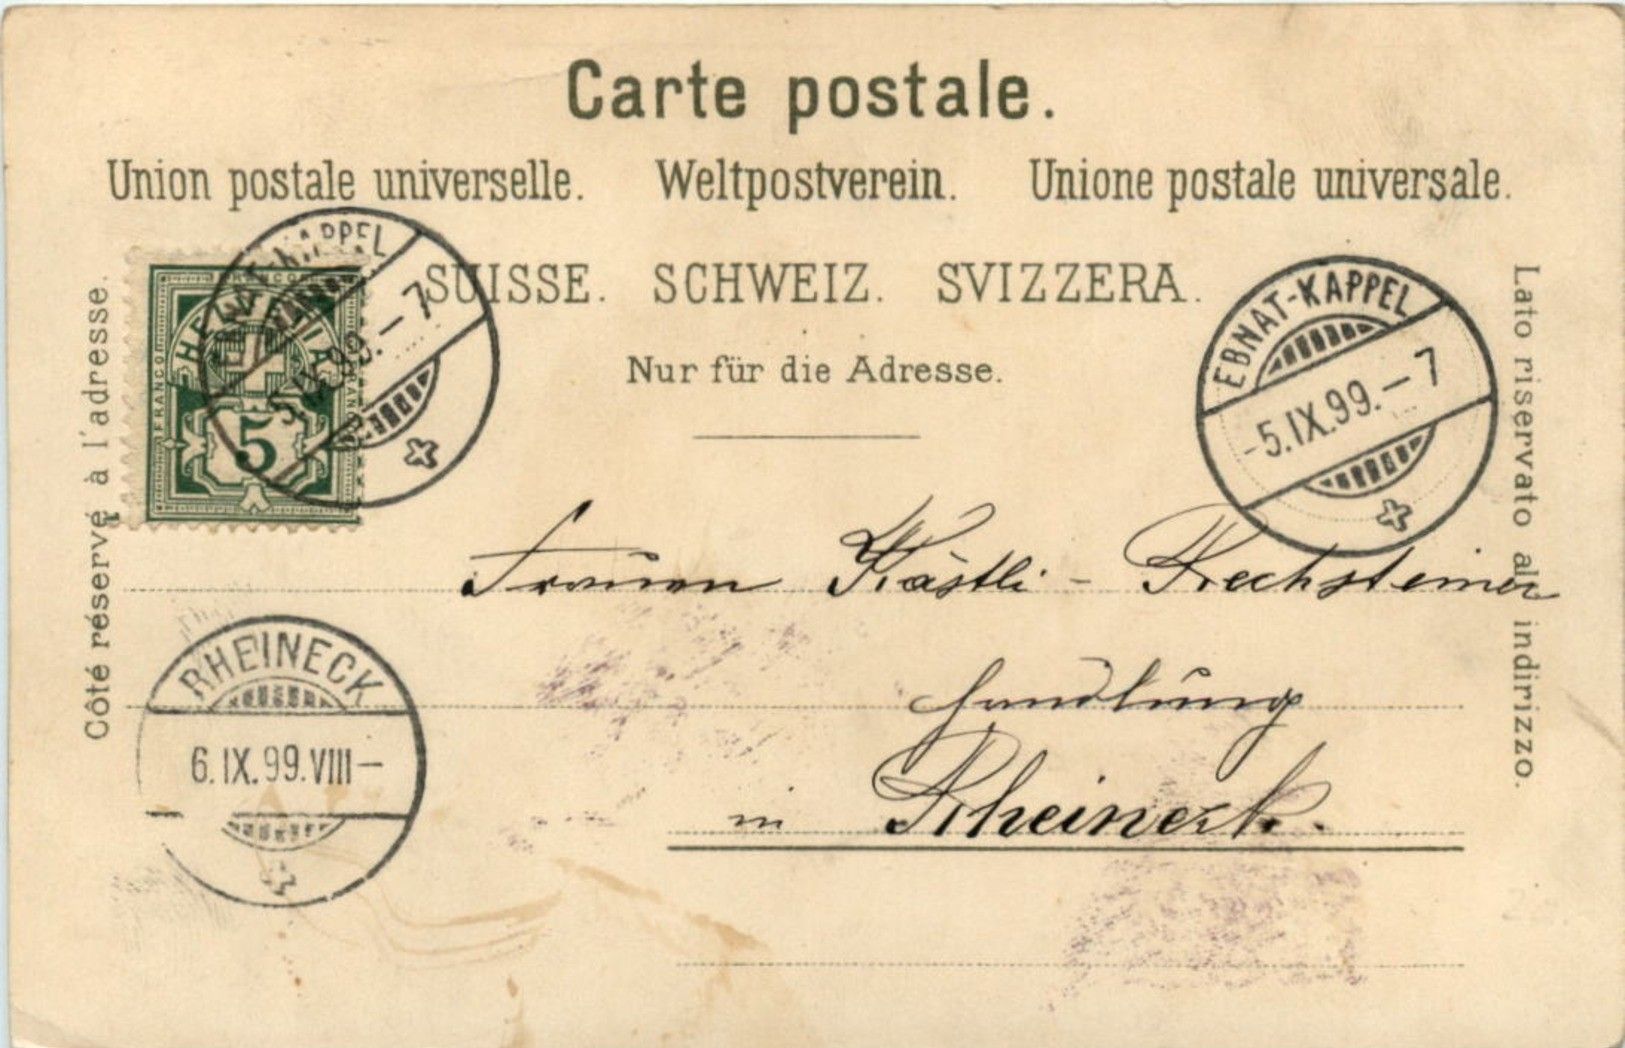 Carte postale.
Union postale universelle. Weltpostverein. Unione postale universale.
SUISSE. SCHWEIZ. SVIZZERA.
Nur für die Adresse.
Côté réservé à l'adresse.
Lato riservato all indirizzo.
FRANCO
HELVETIA
FRANCO
5
EBNAT-KAPPEL
5.IX.99.-7
EBNAT-KAPPEL
-5.IX.99.-7
Kästli - Rechsteiner
Handlung
in Rheineck.
RHEINECK
6.IX.99.VIII-